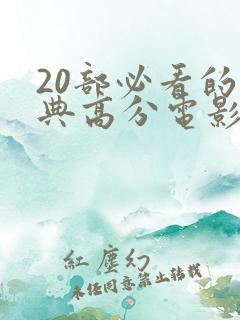 20部必看的
典高分电影
红尘幻
未经同意禁止转载